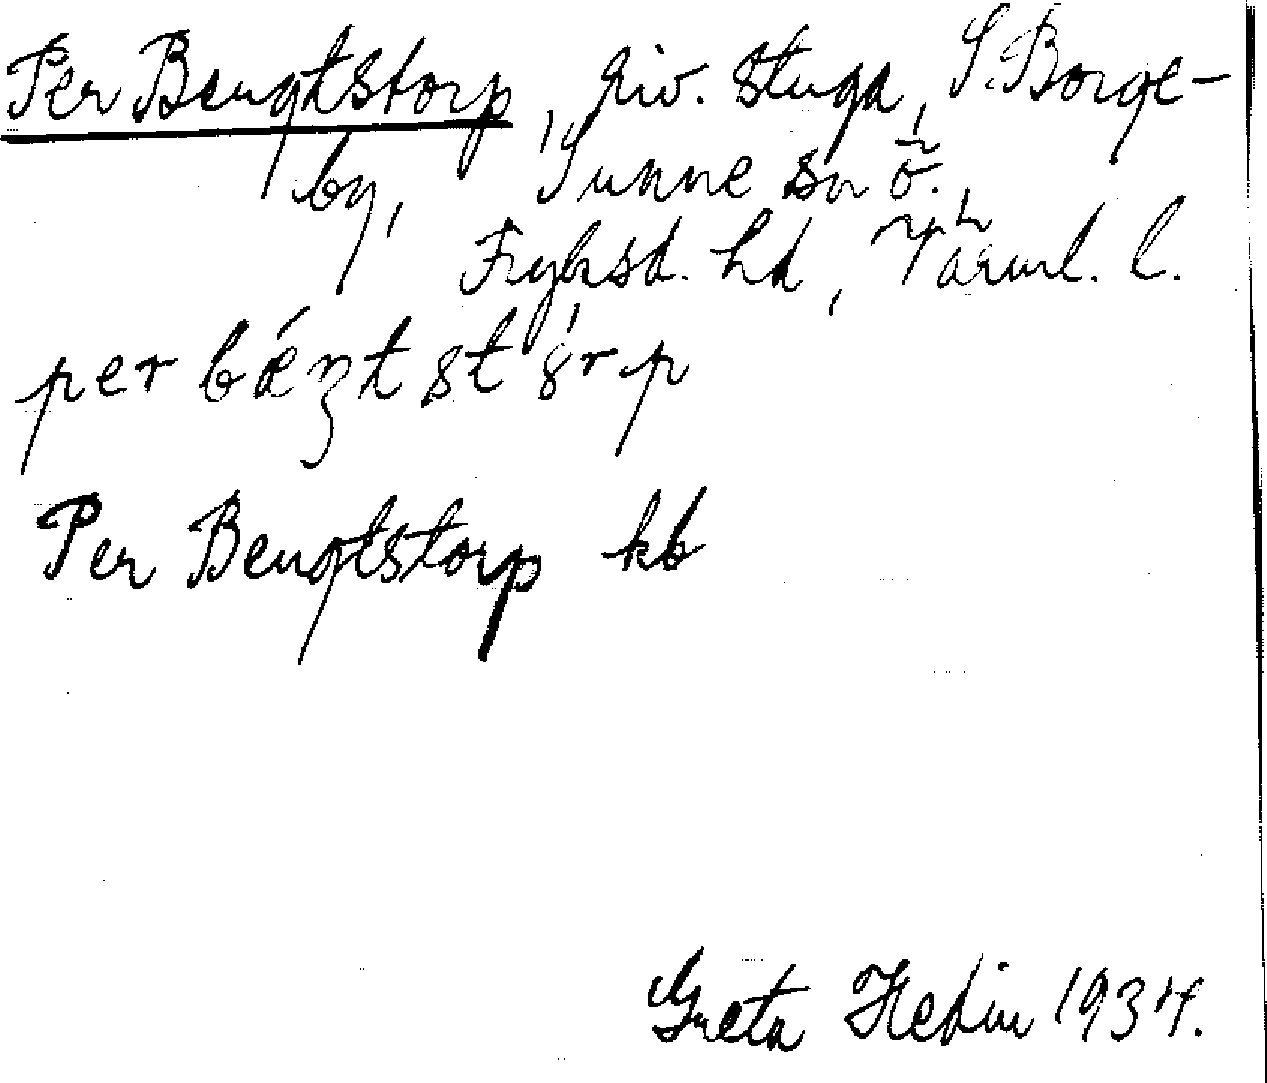 Per Bengtstorp, riv. stuga, S. Borge-
by, Sunne sn ö.,
Fryksd. hd, Värml. l.
per bǽŋtstȣ̀rp
Per Bengtstorp kb
Greta Hedin 1934.